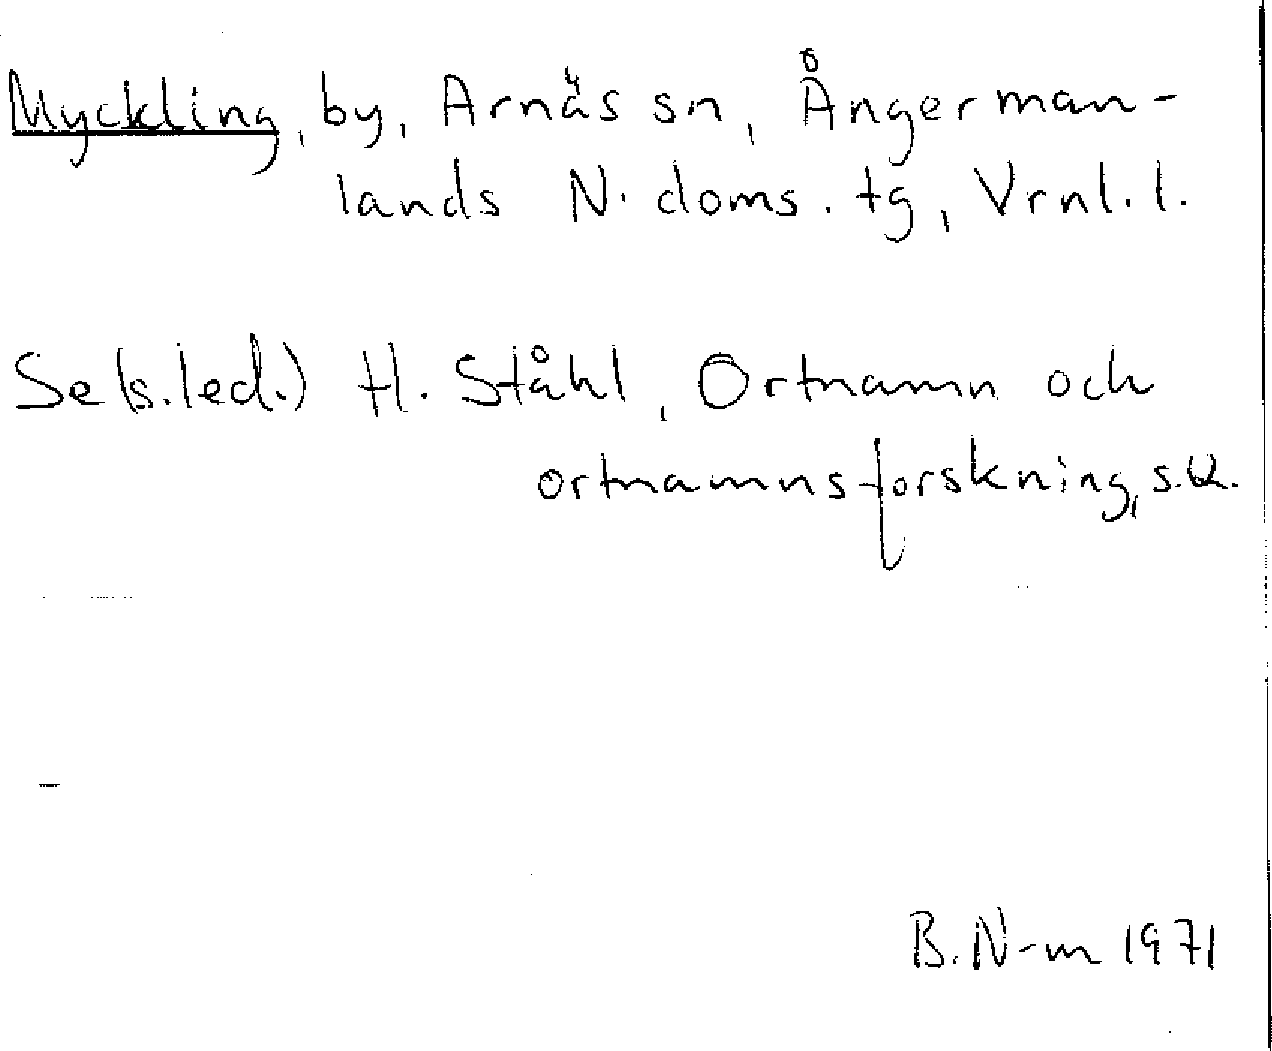 Myckling, by, Arnäs sn, Ångerman-
lands N. doms. tg, Vrnl. l.
Se (s.led.) H. Ståhl, Ortnamn och
ortnamnsforskning, s.
B. N-m 1971